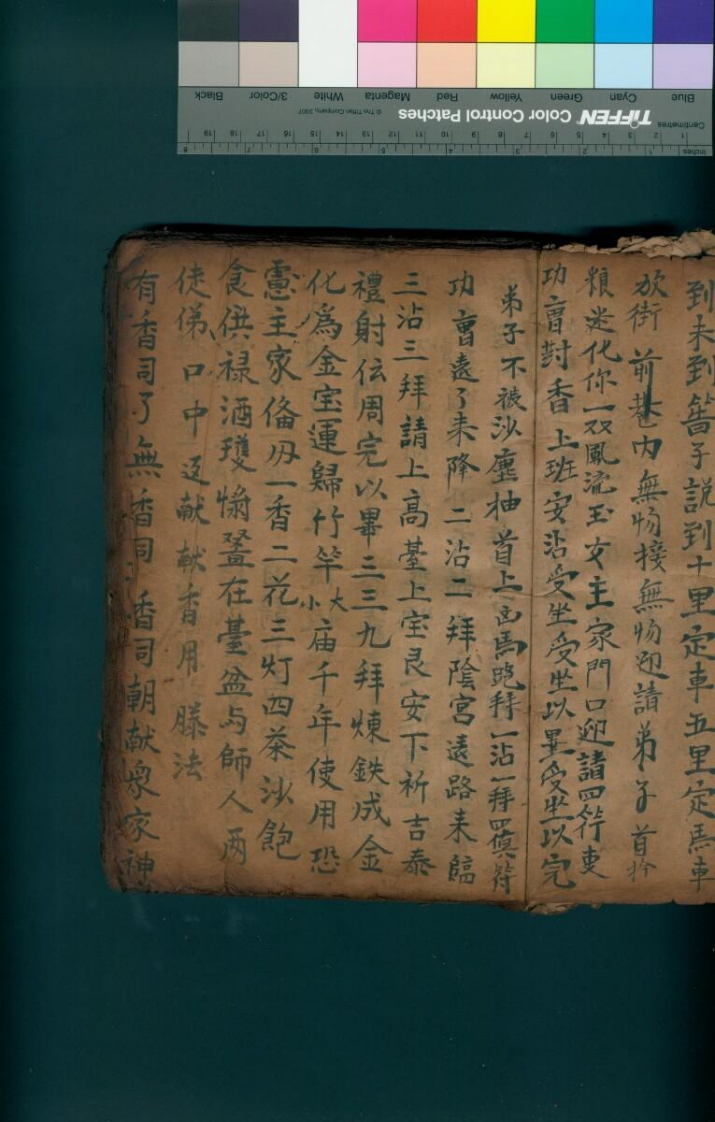 到未到篙子説到十里定車五里定馬車
放街前巷内無物接無物迎請弟子首拎
粮迷化你一双風流玉女主家門口迎請四符吏
功曹對香上班安沾受坐受坐以畢受坐以完
弟子不被沙塵柚首上馬跪拜一沾一拜四 符
功曹遠了来降二沾二拜陰宮遠路来臨
三沾三拜請上高基上宝良安下祈吉泰
禮射伝周完以畢三三九拜煉鉄成金
化為金宝運歸竹竿大小庙千年使用恐
慮主家俻办一香二花三灯四茶沙飽
食供禄酒 在臺盆与師人两
徒俤口中 献献香用 法
有香司了無香司香司朝献衆家神
Blue Cyan Green Yellow Red Magenta White 3/Color Black
TIFFEN Color Control Patches © The Tiffen Company, 2007
Centimetres 1 2 3 4 5 6 7 8 9 10 11 12 13 14 15 16 17 18 19
Inches 1 2 3 4 5 6 7 8